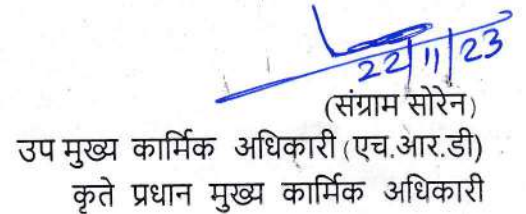 22/11/23
(संग्राम सोरेन)
उप मुख्य कार्मिक अधिकारी (एच.आर.डी)
कृते प्रधान मुख्य कार्मिक अधिकारी